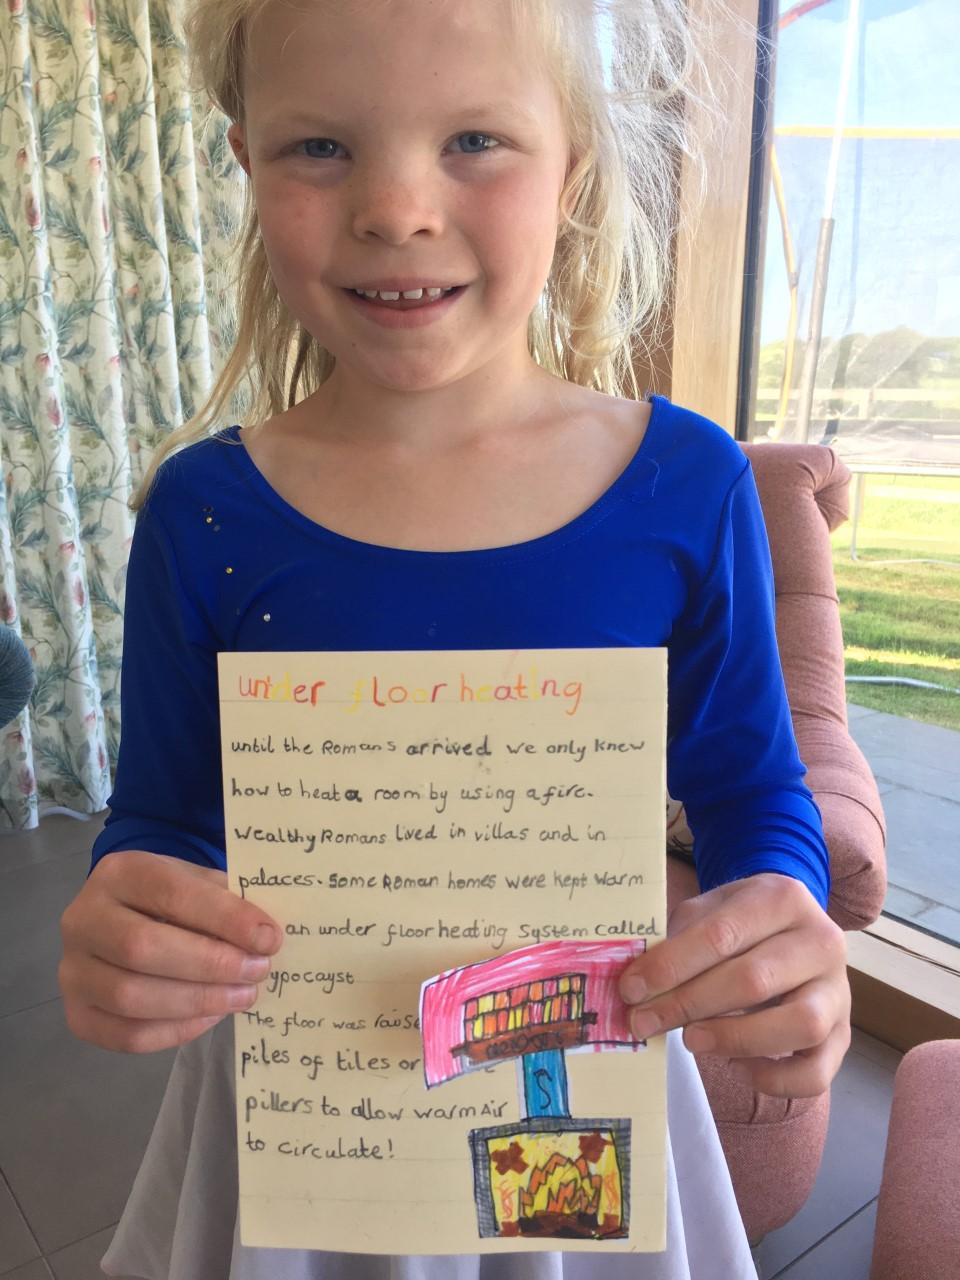 under floor heating
until the Romans arrived we only knew
how to heat a room by using a fire.
Wealthy Romans lived in villas and in
palaces. Some Roman homes were kept warm
an under floor heating System called
ypocayst
The floor was raise
piles of tiles or
pillers to allow warm Air
to circulate!
S